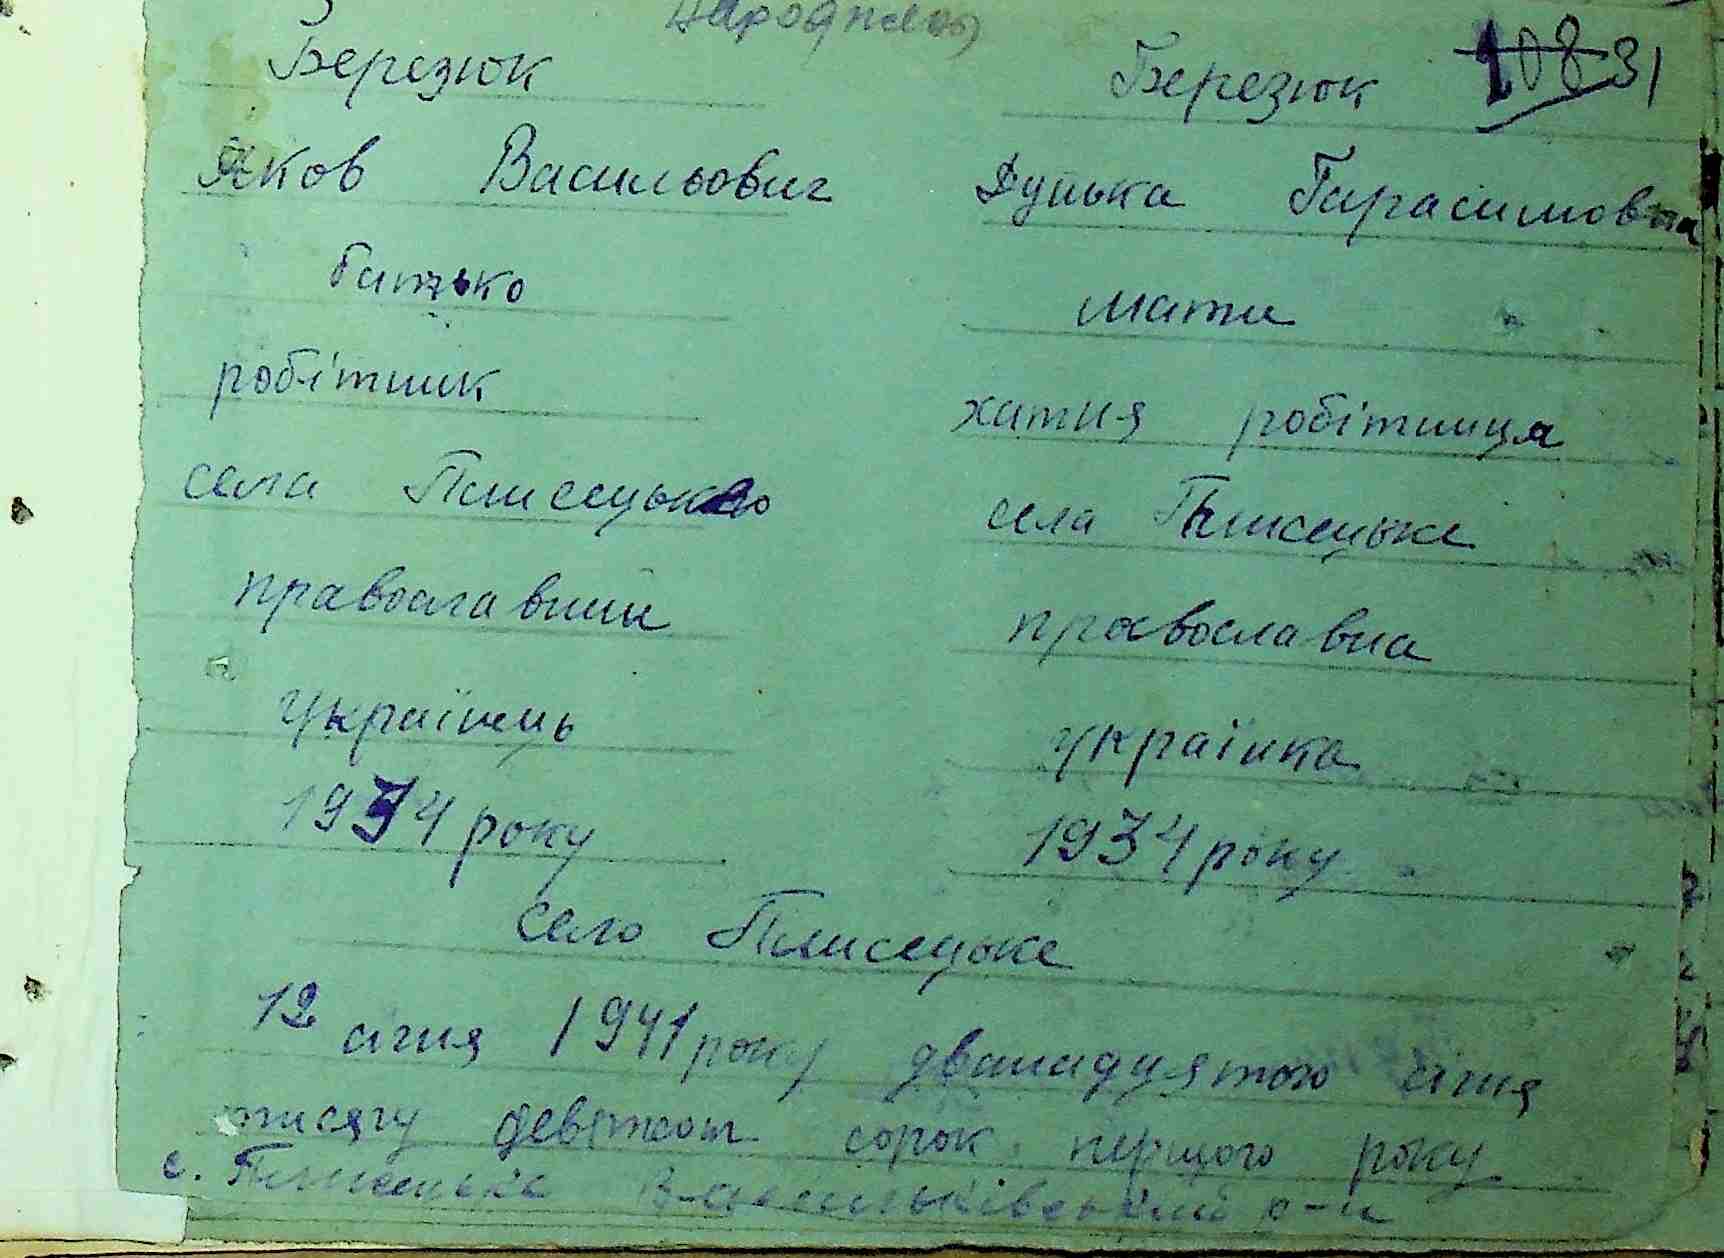 Народився
Березюк Березюк 108 31
Яков Васильович Дунька Гарасимовна
батько мати
робітник хатня робітниця
села Плисецько села Плисецьке
православний православна
українець українка
1934 року 1934 року
село Плисецьке
12 січня 1941 року дванадцятого січня
тисячу девятсот сорок першого року
с. Плисецьке Васильківський р-н